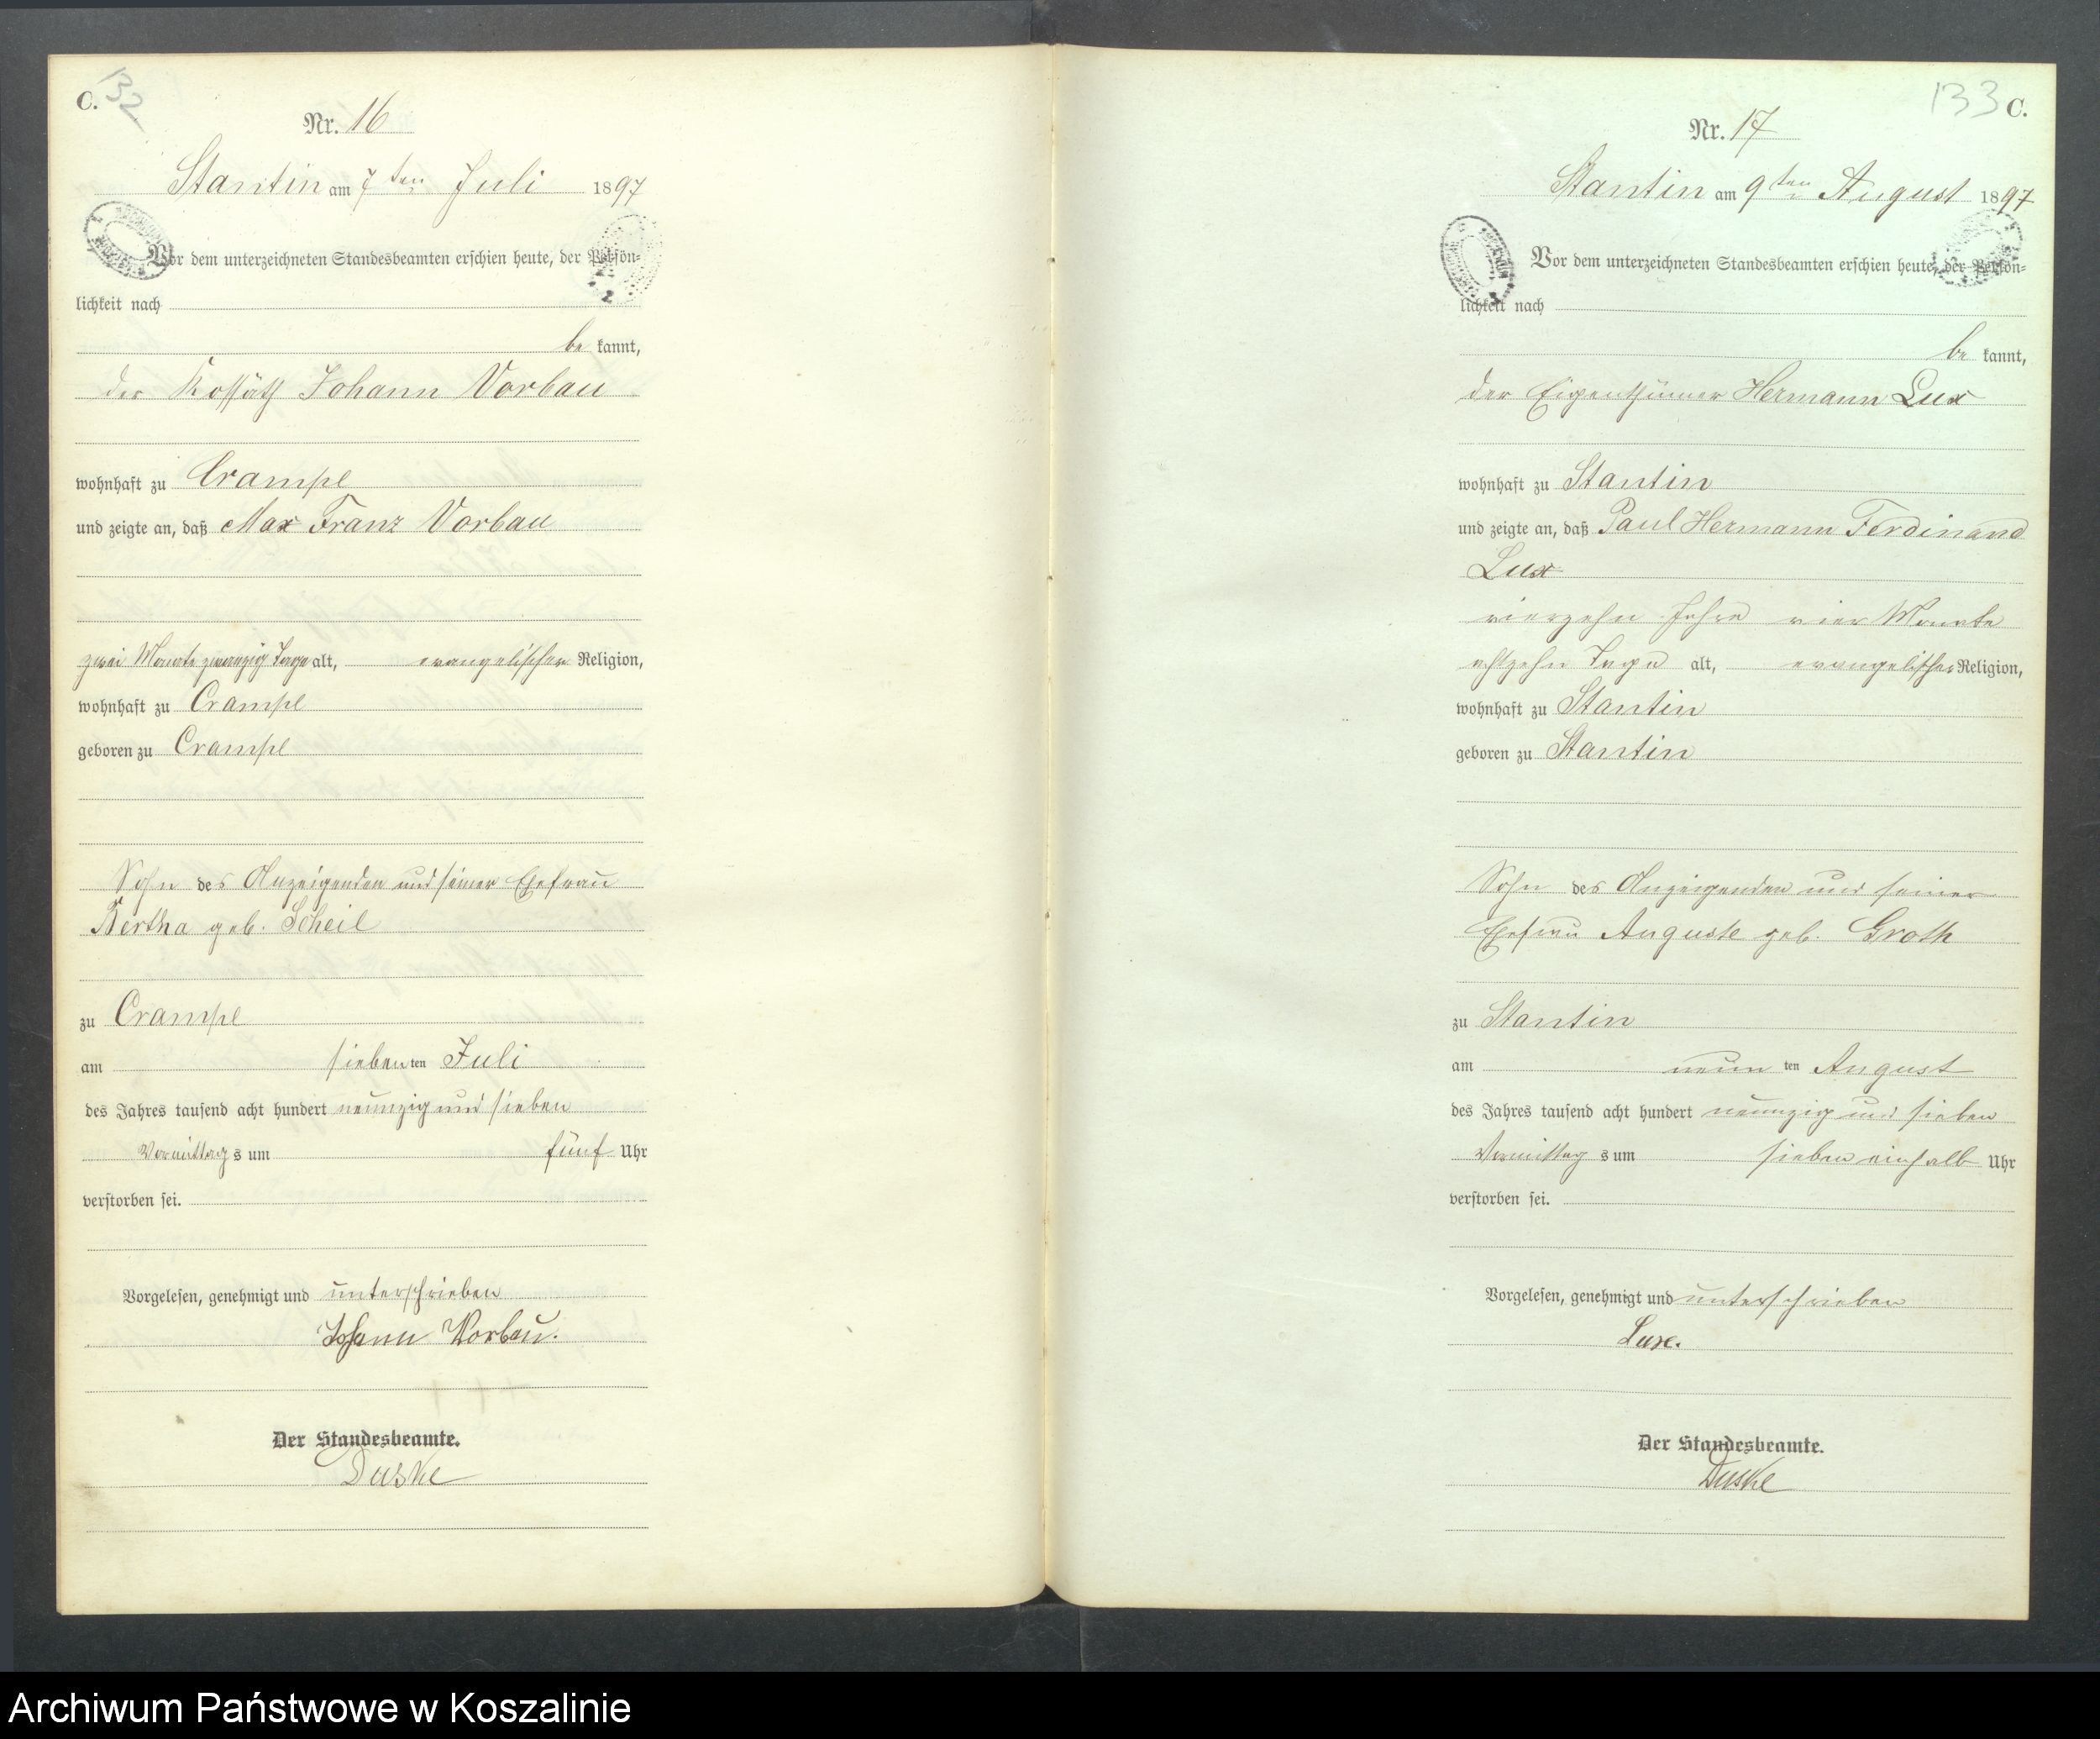 C. 132
Nr. 16
Stantin am 7ten Juli 1897
Vor dem unterzeichneten Standesbeamten erschien heute, der Persön-
lichkeit nach
be kannt,
der Kossäth Johann Vorbau
wohnhaft zu Crampe
und zeigte an, daß Max Franz Vorbau
zwei Monate zwanzig Tage alt, evangelischer Religion,
wohnhaft zu Crampe
geboren zu Crampe
Sohn des Anzeigenden und seiner Ehefrau
Bertha geb. Scheil
zu Crampe
am siebenten Juli
des Jahres tausend acht hundert neunzig und sieben
Vormittags um fünf Uhr
verstorben sei.
Vorgelesen, genehmigt und unterschrieben
Johann Vorbau.
Der Standesbeamte.
Duske
133 C.
Nr. 17
Stantin am 9ten August 1897
Vor dem unterzeichneten Standesbeamten erschien heute, der Persön-
lichkeit nach
be kannt,
der Eigenthümer Hermann Lux
wohnhaft zu Stantin
und zeigte an, daß Paul Hermann Ferdinand
Lux
vierzehn Jahre vier Monate
achtzehn Tage alt, evangelischer Religion,
wohnhaft zu Stantin
geboren zu Stantin
Sohn des Anzeigenden und seiner
Ehefrau Auguste geb. Groth
zu Stantin
am neun ten August
des Jahres tausend acht hundert neunzig und sieben
Vormittag s um sieben einhalb Uhr
verstorben sei.
Vorgelesen, genehmigt und unterschrieben
Lux.
Der Standesbeamte.
Duske
Archiwum Państwowe w Koszalinie